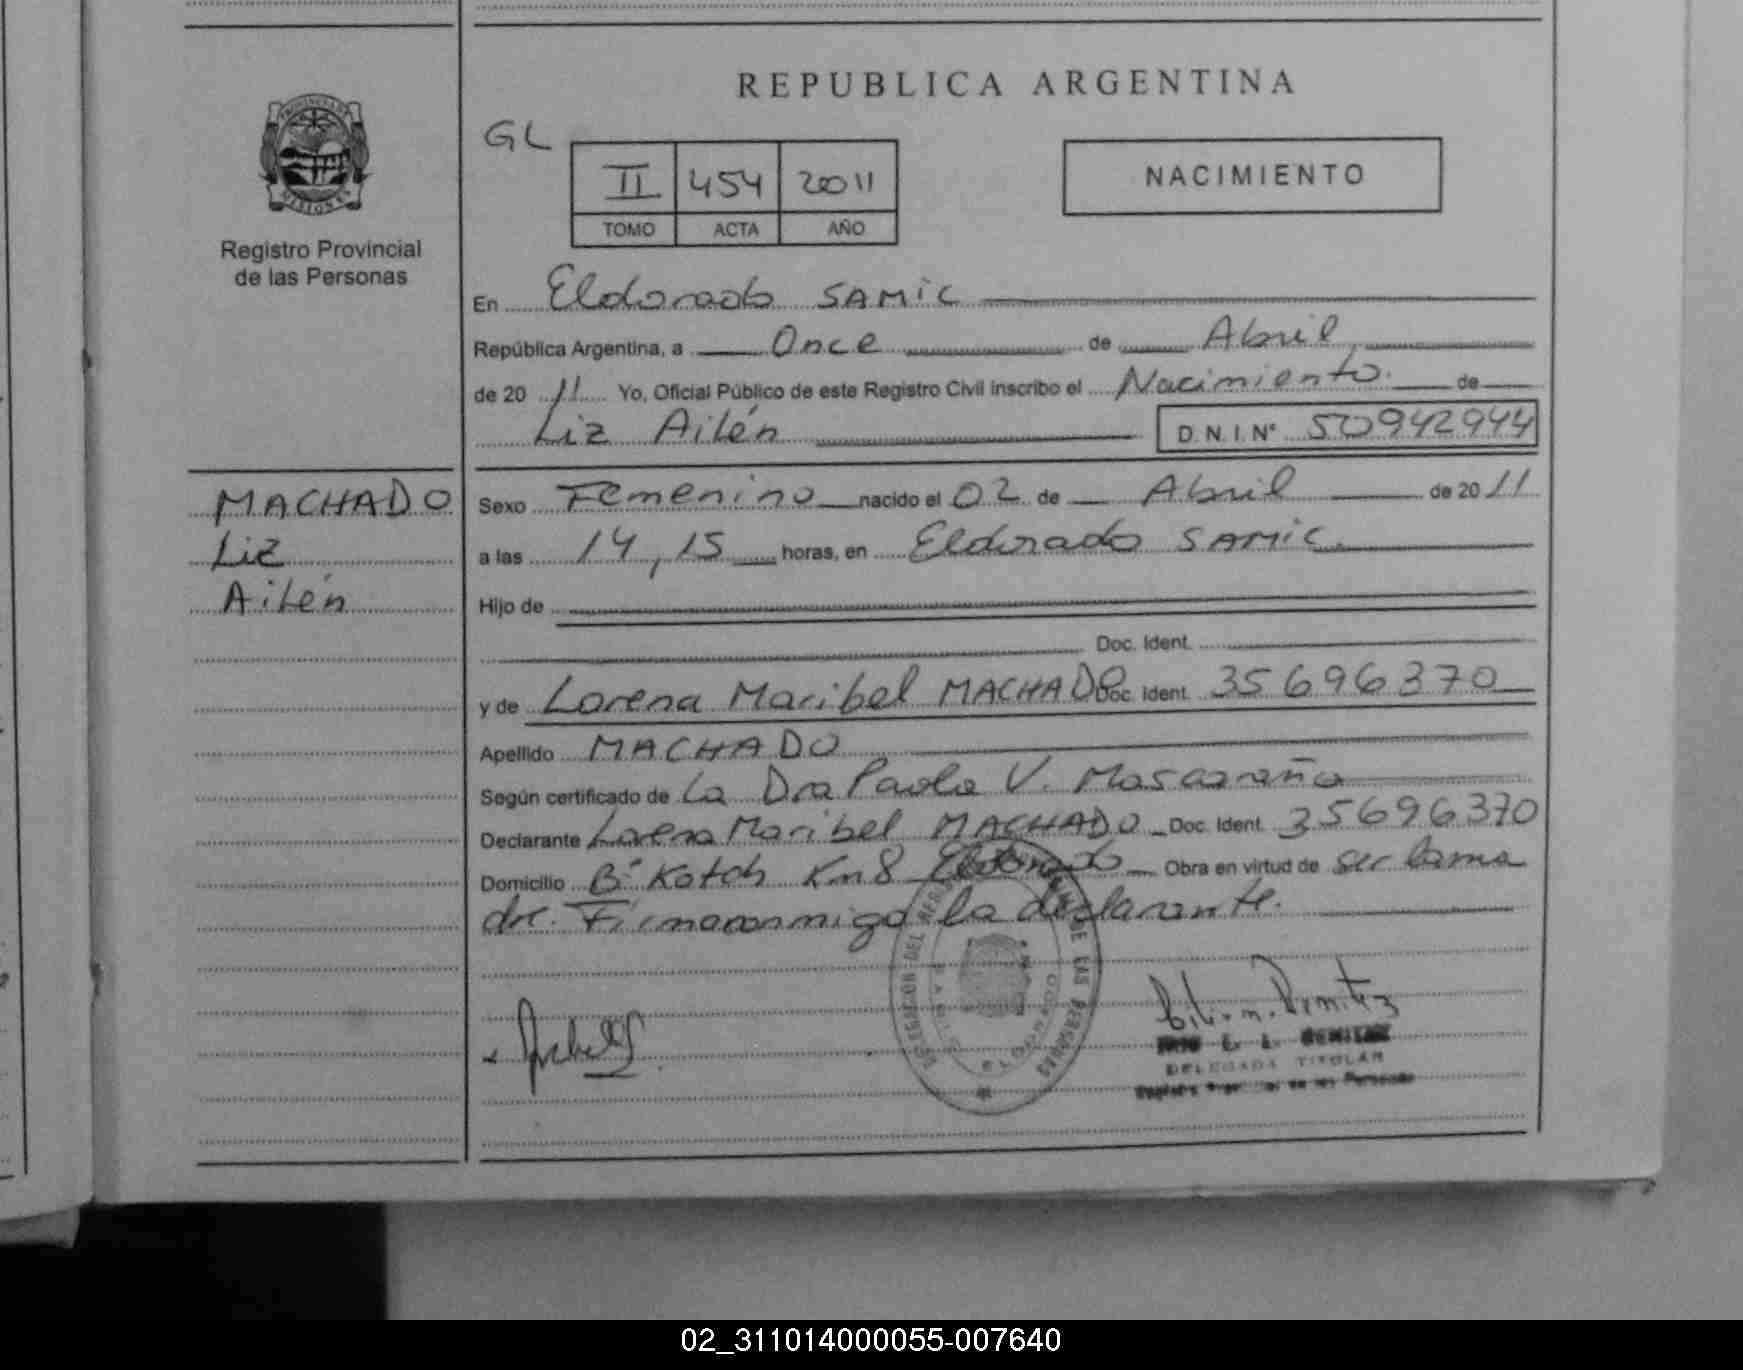 REPUBLICA ARGENTINA
PROVINCIA DE
MISIONES
GL
II 454 2011
TOMO ACTA AÑO
NACIMIENTO
Registro Provincial
de las Personas
En Eldorado SAMIC
República Argentina, a Once de Abril
de 20 11 Yo, Oficial Público de este Registro Civil inscribo el Nacimiento. de
Liz Ailén D.N.I.Nº 50942944
MACHADO
Liz
Ailén
Sexo Femenino nacido el 02 de Abril de 20 11
a las 14,15 horas, en Eldorado SAMIC.
Hijo de
Doc. Ident.
y de Lorena Maribel MACHADO Doc. Ident. 35696370
Apellido MACHADO
Según certificado de La Dra Paola V.
Declarante Lorena Maribel MACHADO Doc. Ident. 35696370
Domicilio Bº Km8 Eldorado Obra en virtud de ser la ma
dre. la declarante.
DELEGACION DEL REGISTRO DE LAS PERSONAS
ELDORADO
BENITEZ
DELEGADA TITULAR
Registro Provincial de las Personas
02_311014000055-007640